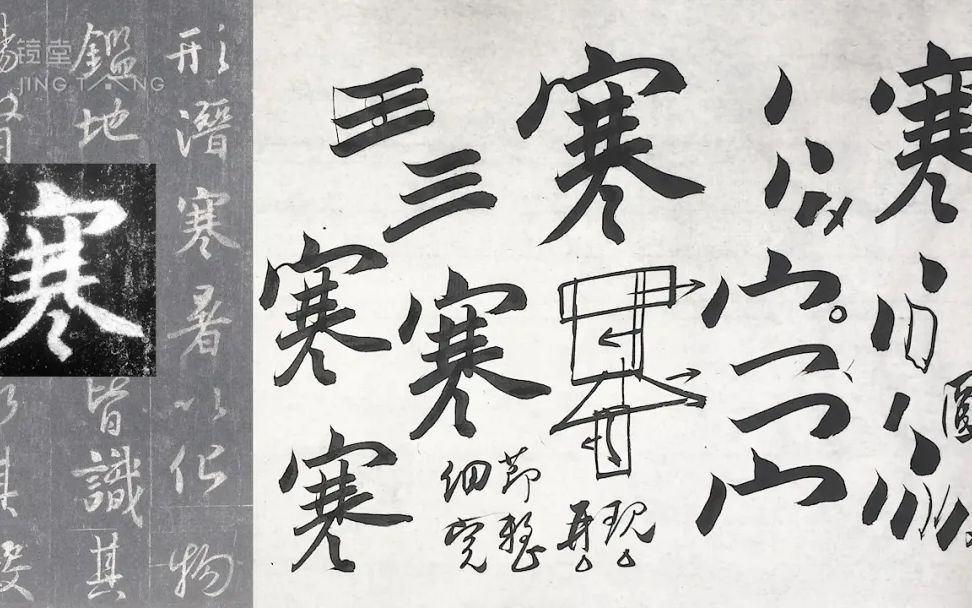 镜堂
JING TANG
形潛寒暑以化物
鑑地
皆識其
寒
王
三
寒
寒
寒
寒
寒
宀
宀
细节
完整
再现